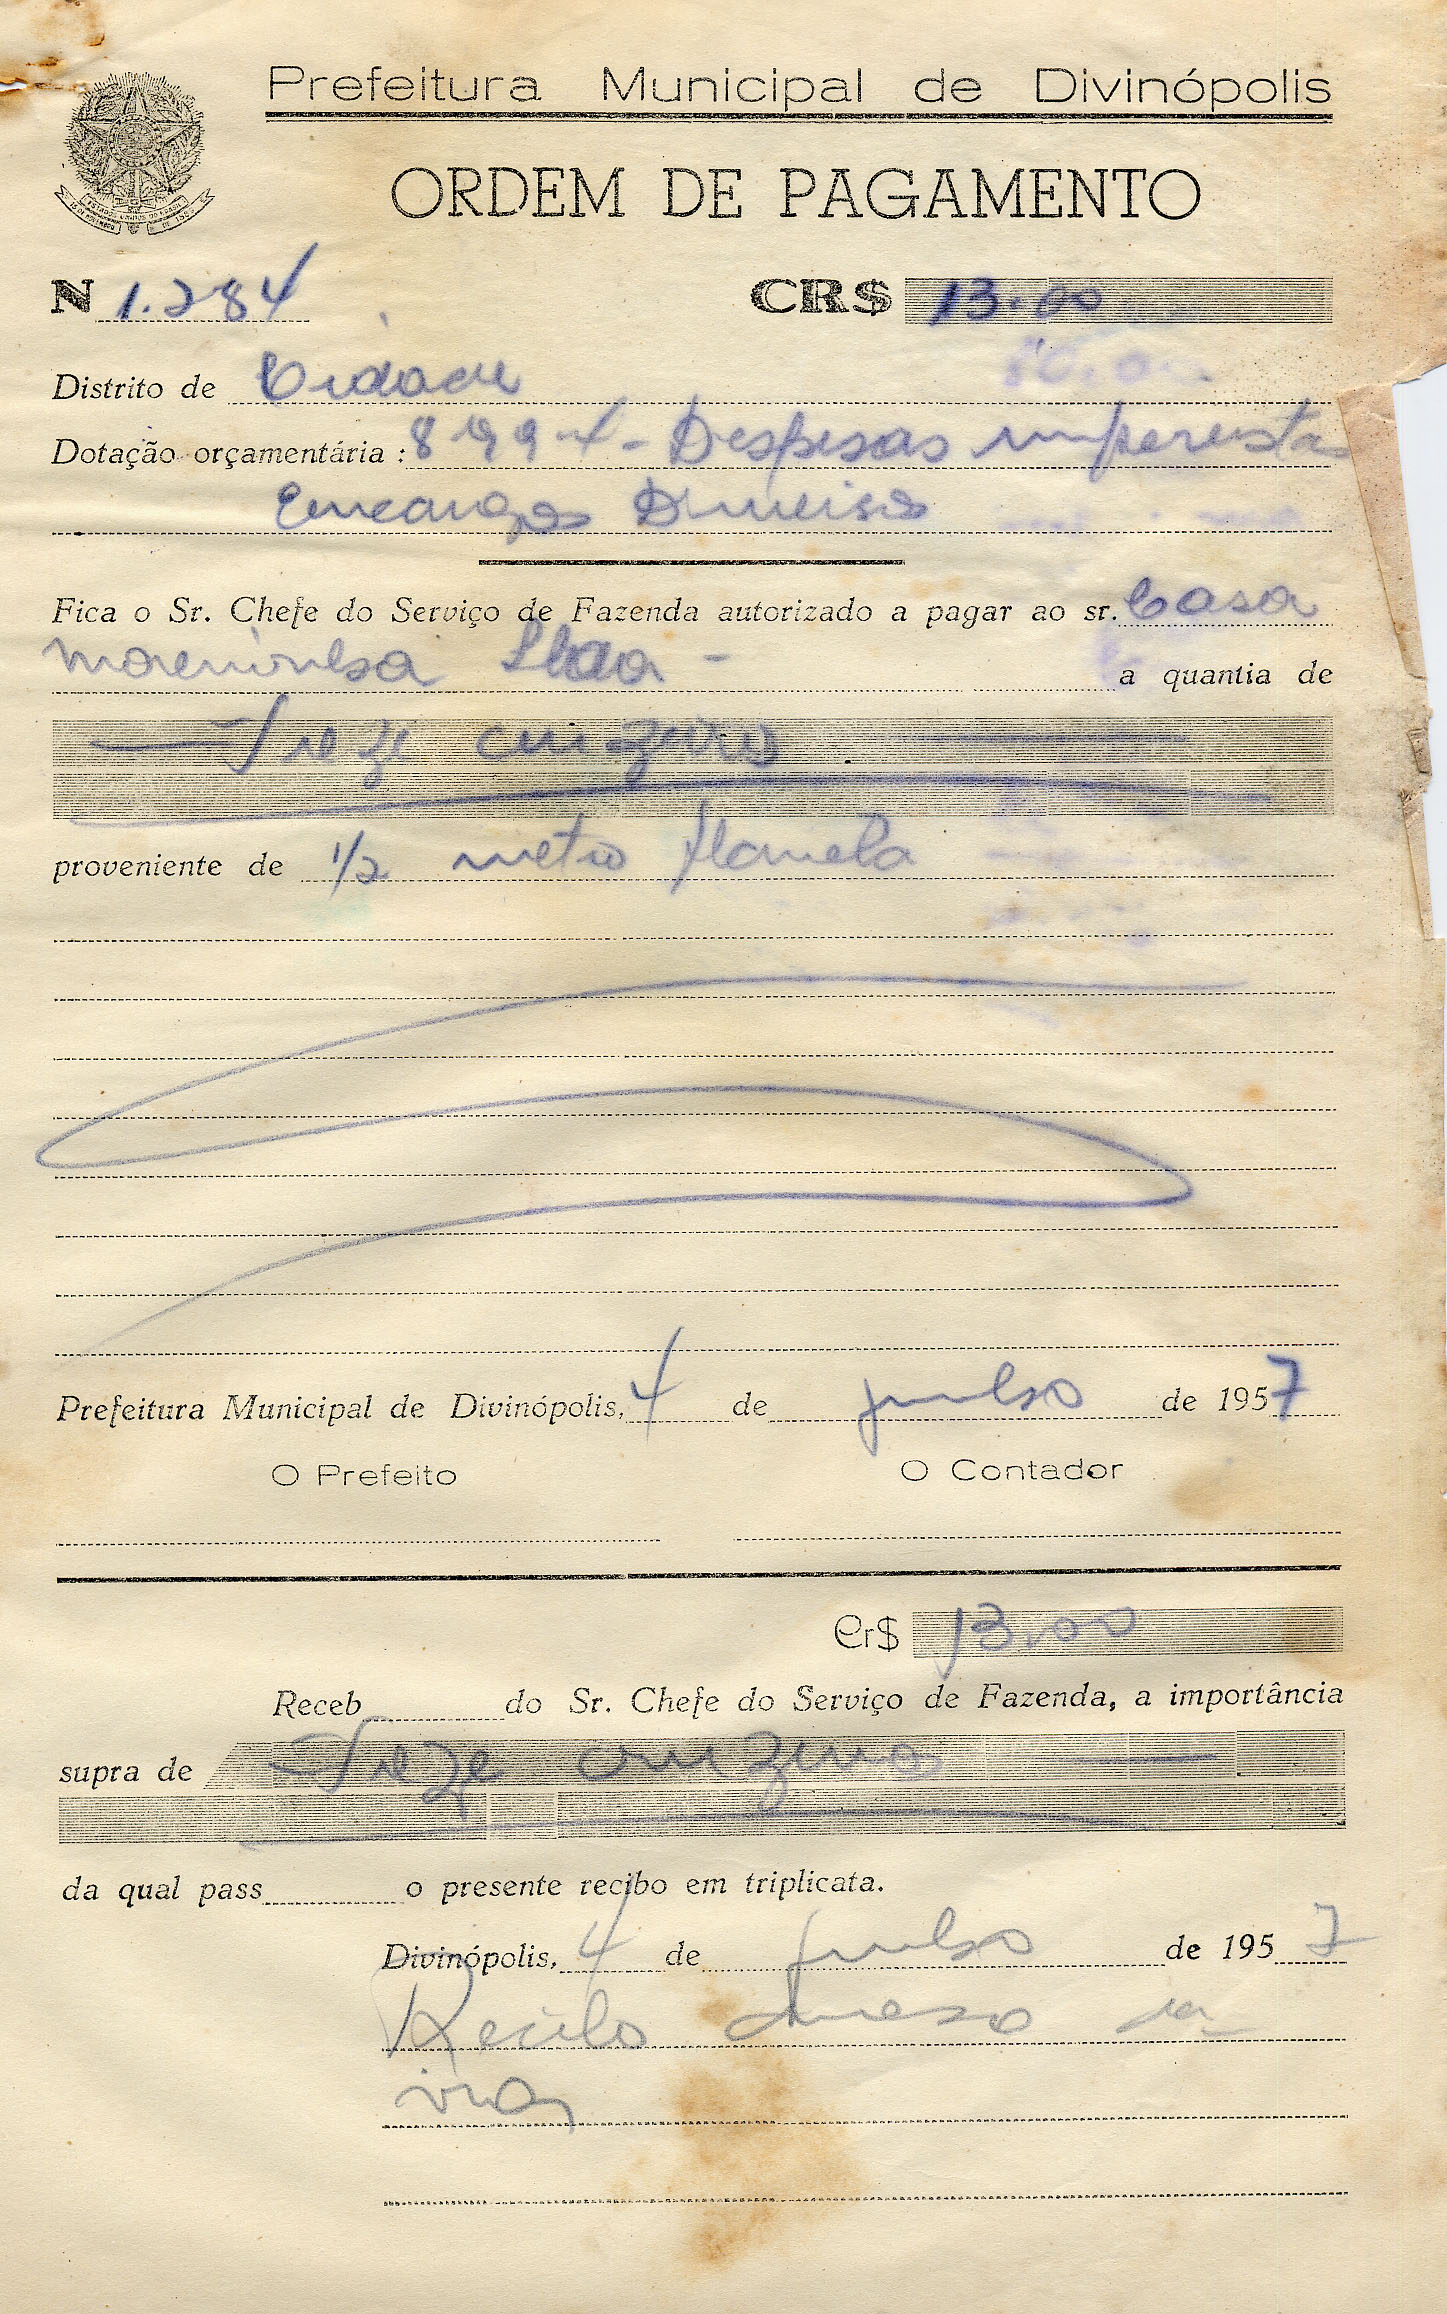 Prefeitura Municipal de Divinópolis
ORDEM DE PAGAMENTO
N 1.284 CR$ 13.00
Distrito de Cidade
Dotação orçamentária: 8 99 4 - Despesas imprevistas
Encargos Diversos
Fica o Sr. Chefe do Serviço de Fazenda autorizado a pagar ao sr. Casa
a quantia de
Treze cruzeiros
proveniente de 1/2 metro flanela
Prefeitura Municipal de Divinópolis, 4 de julho de 1957
O Prefeito O Contador
Cr$ 13.00
Receb do Sr. Chefe do Serviço de Fazenda, a importância
supra de Treze cruzeiros
da qual pass o presente recibo em triplicata.
Divinópolis, 4 de julho de 1957
Recibo anexo 1a
via